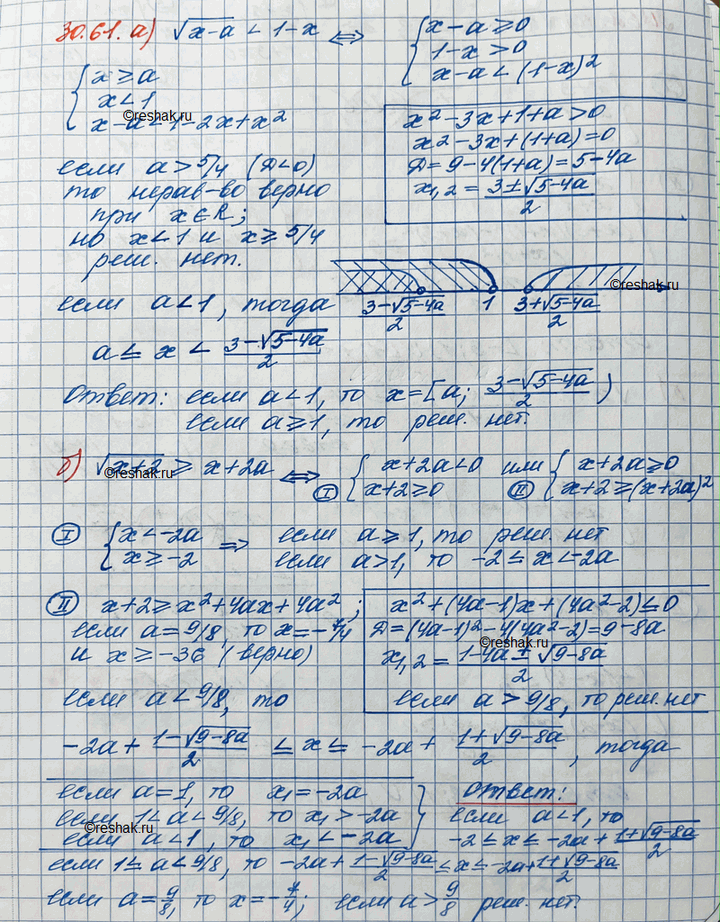 30.61. а) √(x-a) < 1-x <=> { x-a ≥ 0
1-x > 0
x-a < (1-x)²
{ x ≥ a
x < 1
x-a < 1-2x+x²
x²-3x+1+a > 0
x²-3x+(1+a)=0
D=9-4(1+a)=5-4a
x1,2 = (3±√(5-4a))/2
©reshak.ru
если a > 5/4 (D<0)
то нерав-во верно
при x∈R;
но x<1 и x≥5/4
реш. нет.
если a<1, тогда
a ≤ x < (3-√(5-4a))/2
(3-√(5-4a))/2 1 (3+√(5-4a))/2
©reshak.ru
Ответ: если a<1, то x=[a; (3-√(5-4a))/2)
если a≥1, то реш. нет.
б) √(x+2) ≥ x+2a <=> I { x+2a<0 или II { x+2a≥0
x+2≥0 x+2≥(x+2a)²
©reshak.ru
I { x<-2a => если a≥1, то реш. нет
x≥-2 если a>1, то -2≤x<-2a
II x+2≥x²+4ax+4a²;
если a=9/8, то x=-7/4
и x≥-36 (верно)
x²+(4a-1)x+(4a²-2)≤0
D=(4a-1)²-4(4a²-2)=9-8a
x1,2 = (1-4a±√(9-8a))/2
©reshak.ru
если a>9/8, то реш. нет
если a<9/8, то
-2a+(1-√(9-8a))/2 ≤ x ≤ -2a+(1+√(9-8a))/2, тогда
если a=1, то x1=-2a
если 1<a<9/8, то x1>-2a
если a<1, то x1<-2a
©reshak.ru
Ответ:
если a<1, то
-2≤x≤-2a+(1+√(9-8a))/2
если 1≤a<9/8, то -2a+(1-√(9-8a))/2≤x≤-2a+(1+√(9-8a))/2
если a=9/8, то x=-7/4; если a>9/8 реш. нет.